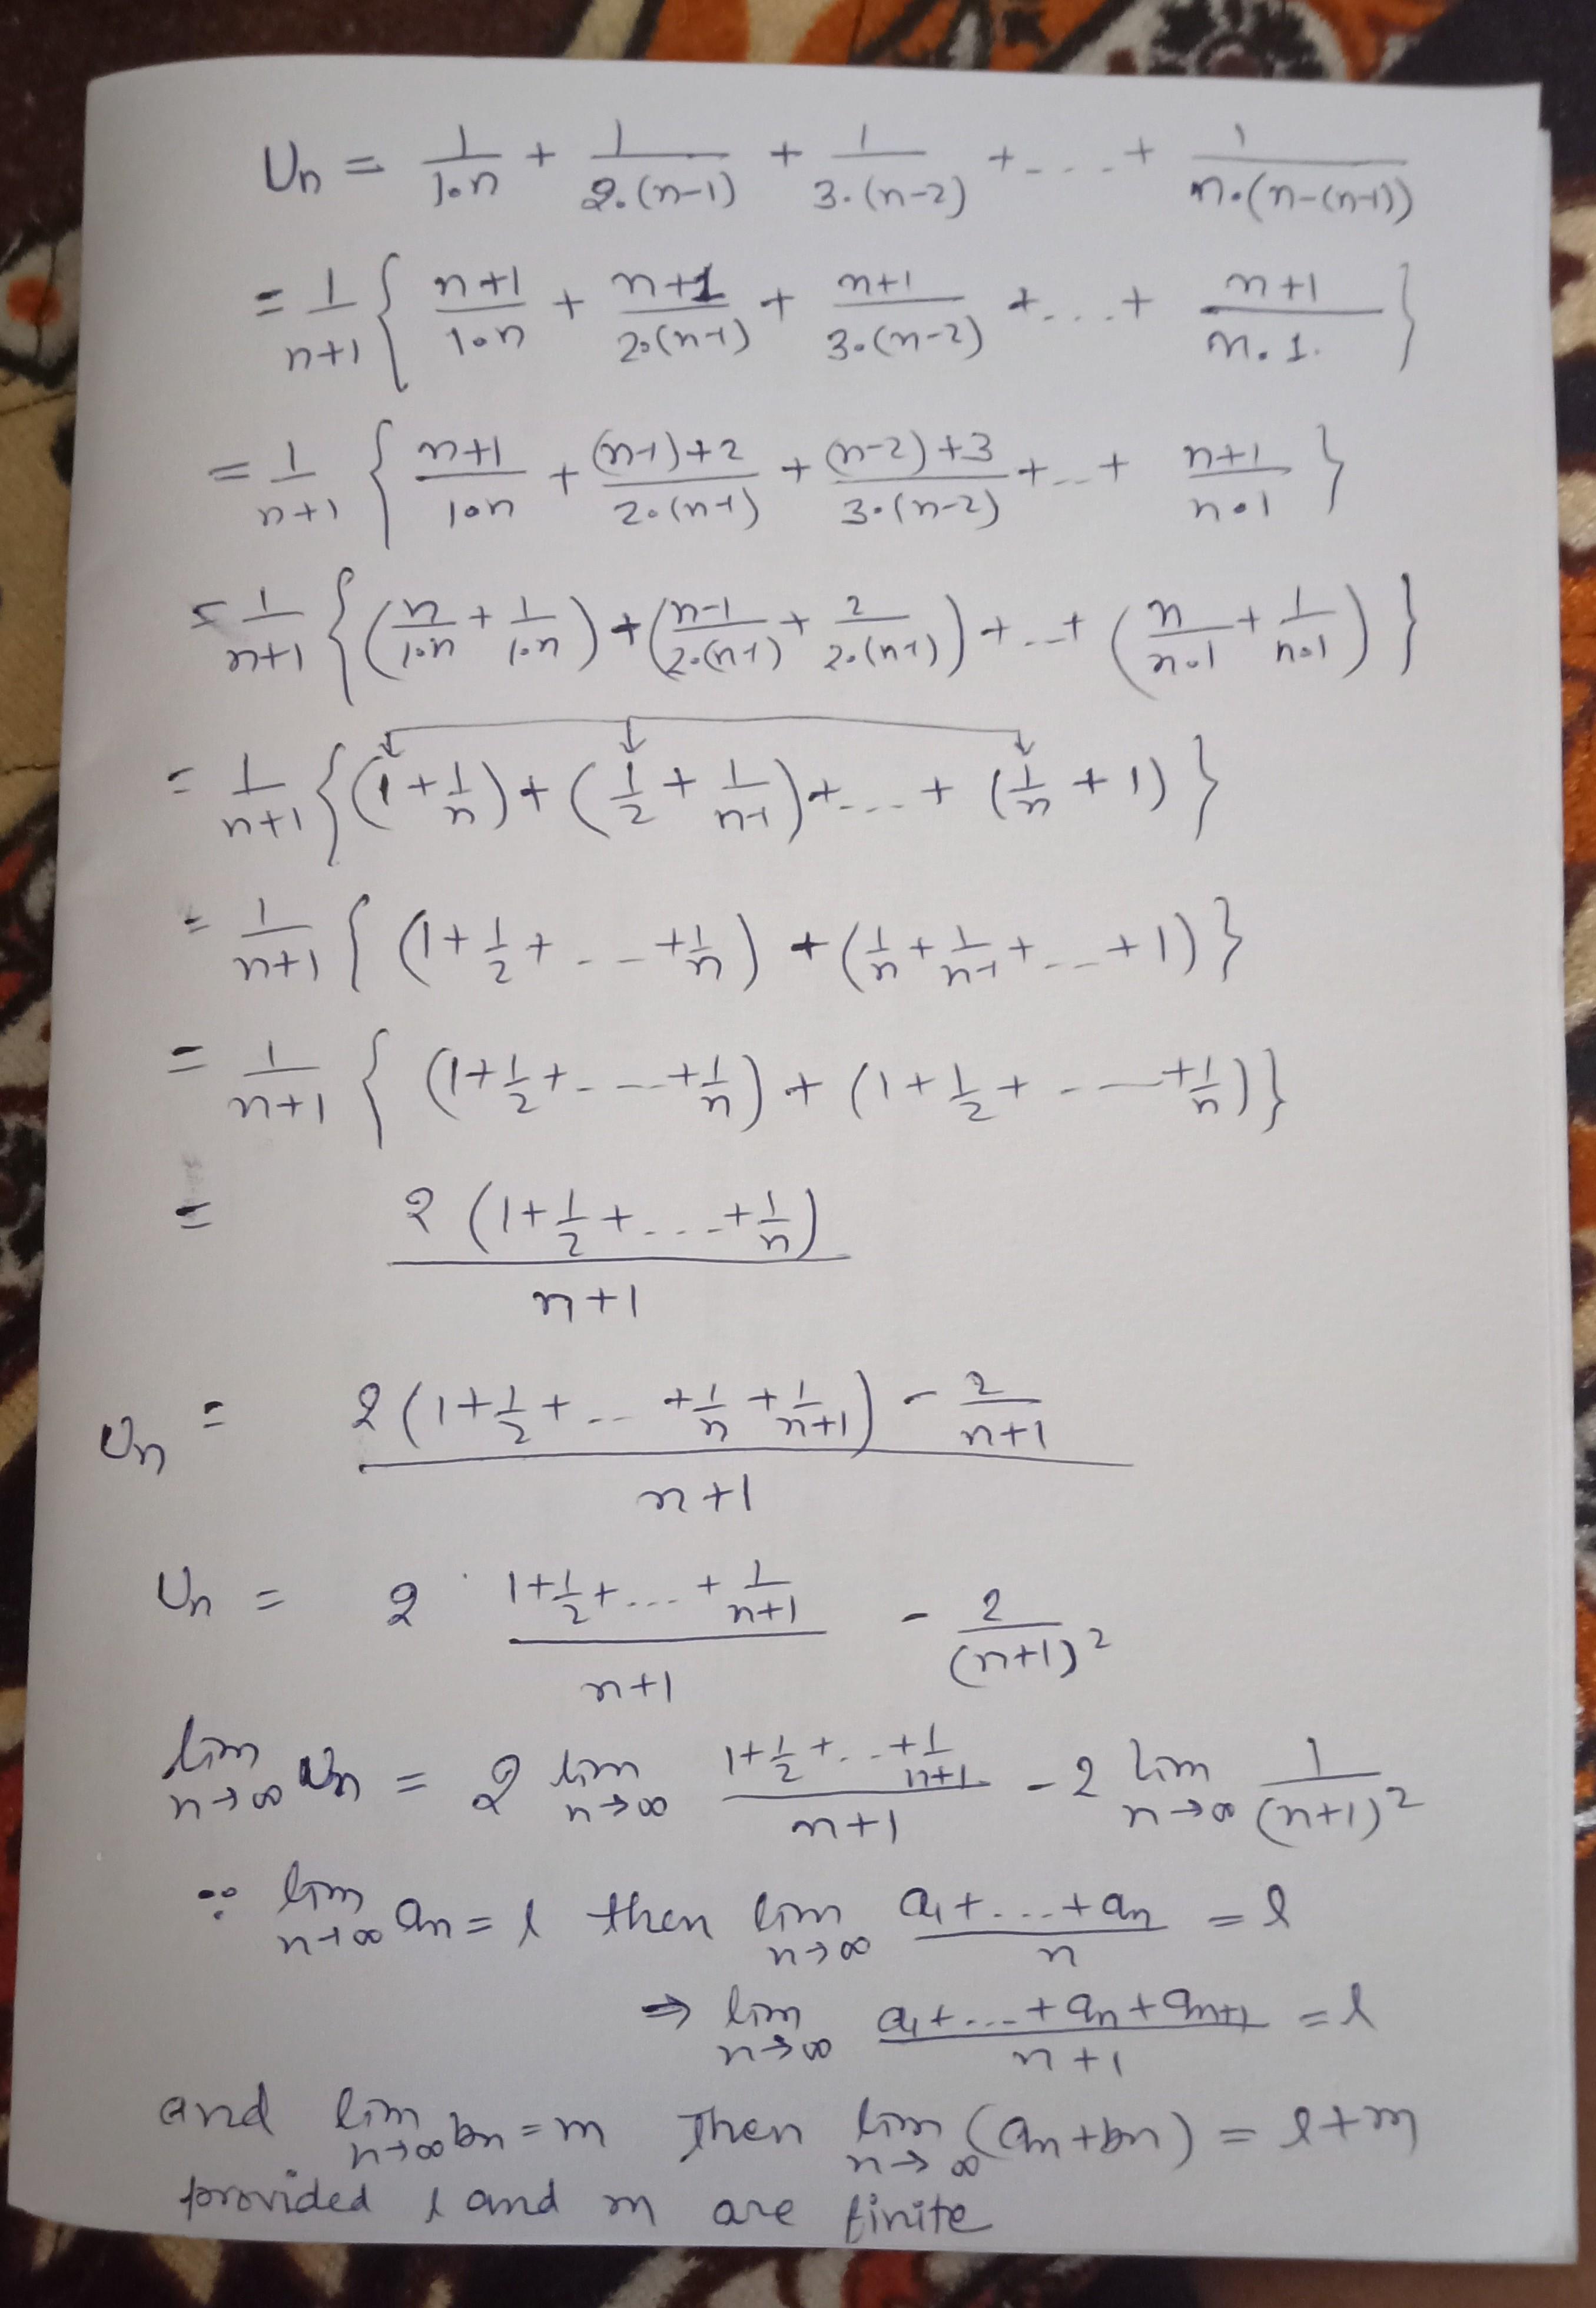 Un = 1/1•n + 1/2•(n-1) + 1/3•(n-2) +....+ 1/n•(n-(n-1))
= 1/n+1 { n+1/1•n + n+1/2•(n-1) + n+1/3•(n-2) +....+ n+1/n•1. }
= 1/n+1 { n+1/1•n + (n-1)+2/2•(n-1) + (n-2)+3/3•(n-2) +...+ n+1/n•1 }
= 1/n+1 { (n/1•n + 1/1•n) + (n-1/2•(n-1) + 2/2•(n-1)) +...+ (n/n•1 + 1/n•1) }
= 1/n+1 { (1 + 1/n) + (1/2 + 1/n-1) +....+ (1/n + 1) }
= 1/n+1 { (1 + 1/2 + ... + 1/n) + (1/n + 1/n-1 + ... + 1) }
= 1/n+1 { (1 + 1/2 + ... + 1/n) + (1 + 1/2 + ... + 1/n) }
= 2 (1 + 1/2 + .... + 1/n) / n+1
Un = 2 (1 + 1/2 + ... + 1/n + 1/n+1) - 2/n+1 / n+1
Un = 2 1 + 1/2 + .... + 1/n+1 / n+1 - 2/(n+1)²
lim n→∞ Un = 2 lim n→∞ 1 + 1/2 + ... + 1/n+1 / n+1 - 2 lim n→∞ 1/(n+1)²
∵ lim n→∞ an = l then lim n→∞ a1+....+an / n = l
⇒ lim n→∞ a1+....+an+an+1 / n+1 = l
and lim n→∞ bn = m then lim n→∞ (an+bn) = l+m
provided l and m are finite